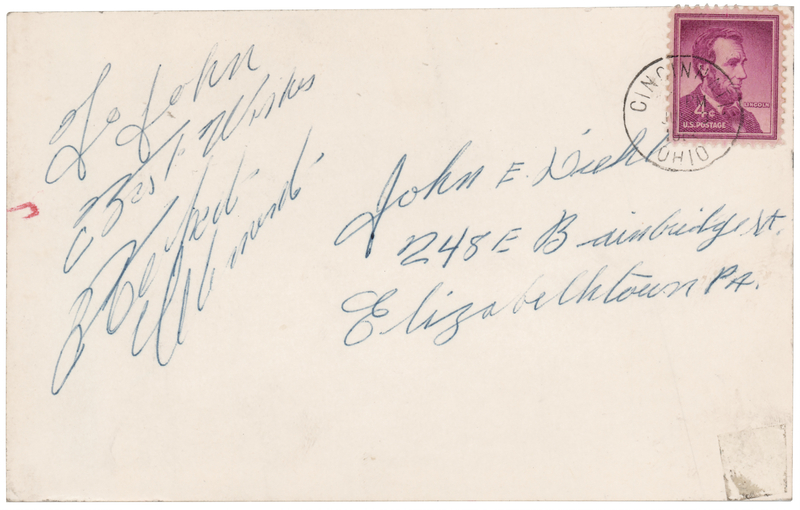 To John
Best Wishes
John E. Diehl
248 E Bainbridge St.
Elizabethtown PA.
CINCINN
OHIO
4¢
LINCOLN
U.S. POSTAGE